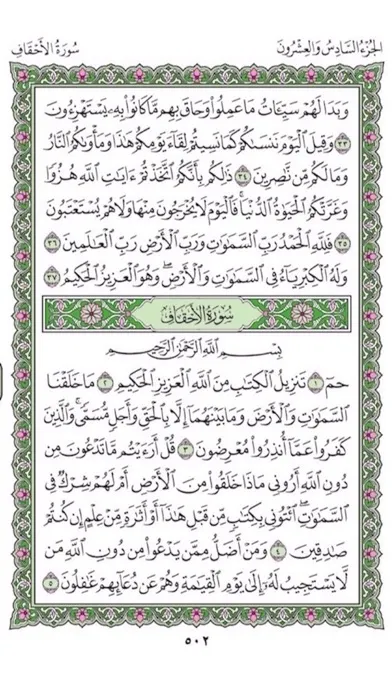 الجزء السادس والعشرون
سورة الأحقاف
وَبَدَا لَهُمْ سَيِّـَٔاتُ مَا عَمِلُوا۟ وَحَاقَ بِهِم مَّا كَانُوا۟ بِهِۦ يَسْتَهْزِءُونَ
٣٣ وَقِيلَ ٱلْيَوْمَ نَنسَىٰكُمْ كَمَا نَسِيتُمْ لِقَآءَ يَوْمِكُمْ هَـٰذَا وَمَأْوَىٰكُمُ ٱلنَّارُ
وَمَا لَكُم مِّن نَّـٰصِرِينَ ٣٤ ذَٰلِكُم بِأَنَّكُمُ ٱتَّخَذْتُمْ ءَايَـٰتِ ٱللَّهِ هُزُوًا
وَغَرَّتْكُمُ ٱلْحَيَوٰةُ ٱلدُّنْيَا ۚ فَٱلْيَوْمَ لَا يُخْرَجُونَ مِنْهَا وَلَا هُمْ يُسْتَعْتَبُونَ
٣٥ فَلِلَّهِ ٱلْحَمْدُ رَبِّ ٱلسَّمَـٰوَٰتِ وَرَبِّ ٱلْأَرْضِ رَبِّ ٱلْعَـٰلَمِينَ ٣٦
وَلَهُ ٱلْكِبْرِيَآءُ فِى ٱلسَّمَـٰوَٰتِ وَٱلْأَرْضِ ۖ وَهُوَ ٱلْعَزِيزُ ٱلْحَكِيمُ ٣٧
سورة الأحقاف
بِسْمِ ٱللَّهِ ٱلرَّحْمَـٰنِ ٱلرَّحِيمِ
حمٓ ١ تَنزِيلُ ٱلْكِتَـٰبِ مِنَ ٱللَّهِ ٱلْعَزِيزِ ٱلْحَكِيمِ ٢ مَا خَلَقْنَا
ٱلسَّمَـٰوَٰتِ وَٱلْأَرْضَ وَمَا بَيْنَهُمَآ إِلَّا بِٱلْحَقِّ وَأَجَلٍ مُّسَمًّى ۚ وَٱلَّذِينَ
كَفَرُوا۟ عَمَّآ أُنذِرُوا۟ مُعْرِضُونَ ٣ قُلْ أَرَءَيْتُم مَّا تَدْعُونَ مِن
دُونِ ٱللَّهِ أَرُونِى مَاذَا خَلَقُوا۟ مِنَ ٱلْأَرْضِ أَمْ لَهُمْ شِرْكٌ فِى
ٱلسَّمَـٰوَٰتِ ۖ ٱئْتُونِى بِكِتَـٰبٍ مِّن قَبْلِ هَـٰذَآ أَوْ أَثَـٰرَةٍ مِّنْ عِلْمٍ إِن كُنتُمْ
صَـٰدِقِينَ ٤ وَمَنْ أَضَلُّ مِمَّن يَدْعُوا۟ مِن دُونِ ٱللَّهِ مَن
لَّا يَسْتَجِيبُ لَهُۥٓ إِلَىٰ يَوْمِ ٱلْقِيَـٰمَةِ وَهُمْ عَن دُعَآئِهِمْ غَـٰفِلُونَ ٥
٥٠٢